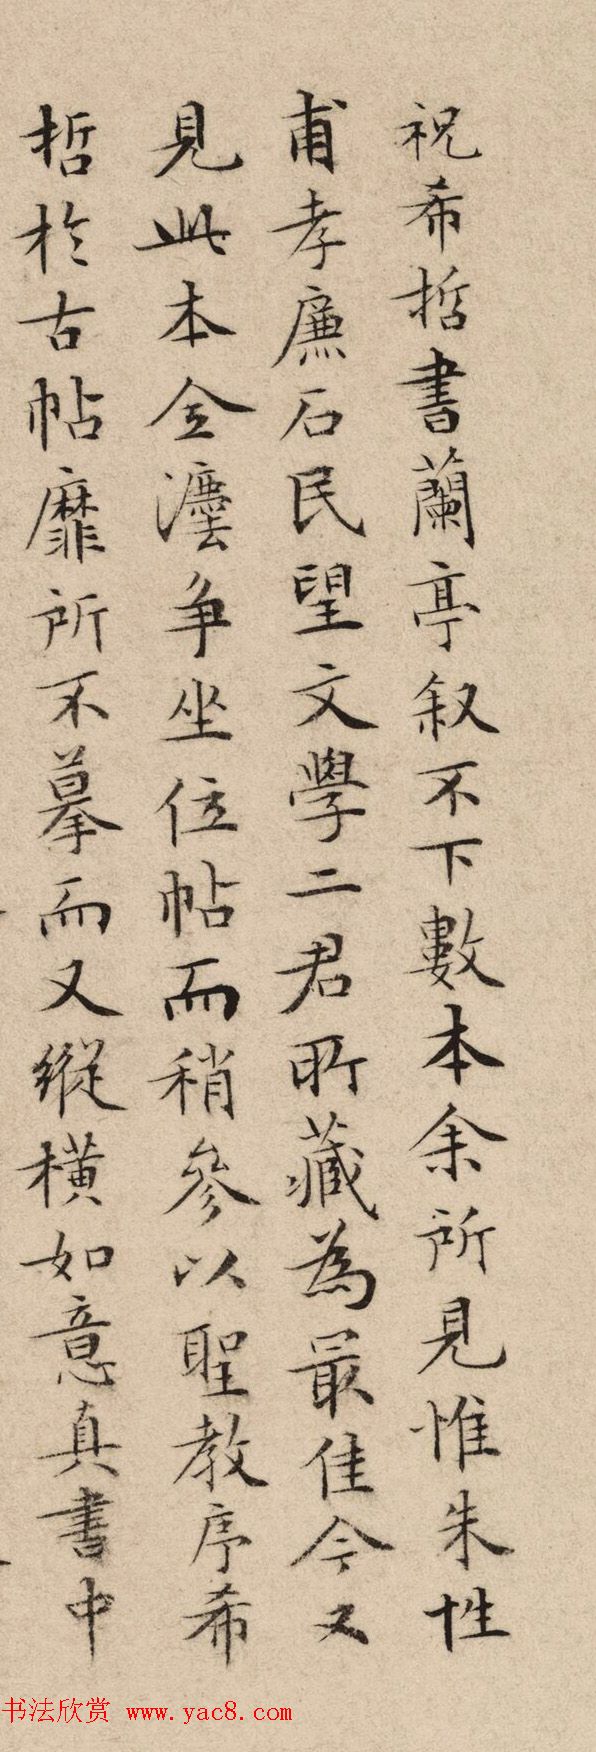 祝希哲書蘭亭叙不下數本余所見惟朱性
甫孝廉石民望文學二君所藏為最佳今又
見此本全灋争坐位帖而稍參以聖教序希
哲於古帖靡所不摹而又縱橫如意真書中
书法欣赏 www.yac8.com